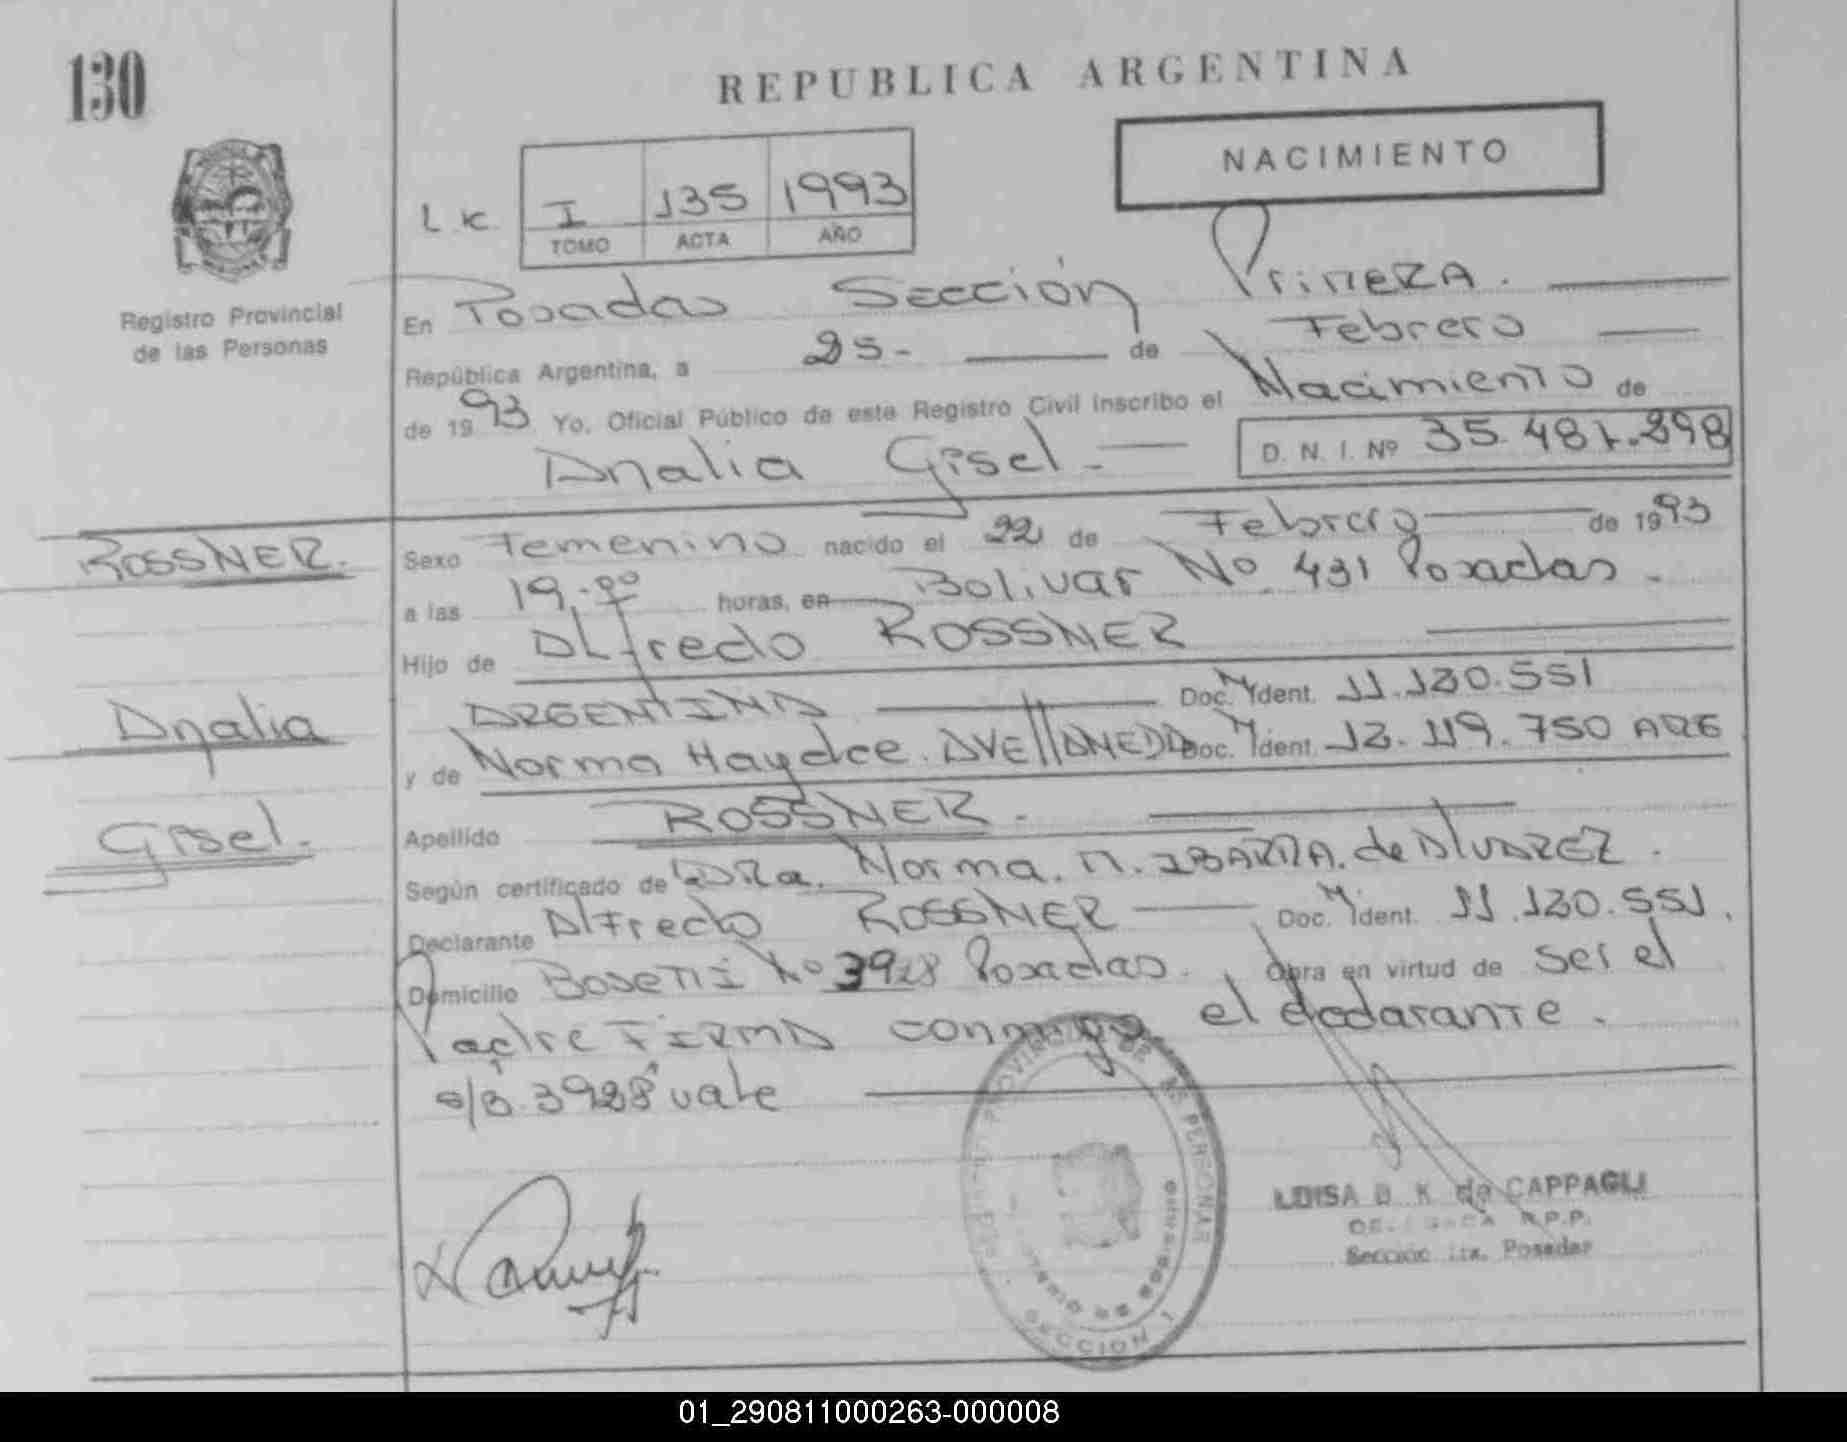 130
REPUBLICA ARGENTINA
NACIMIENTO
L.K. I 135 1993
TOMO ACTA AÑO
Registro Provincial
de las Personas
En Posadas Sección Primera.
República Argentina, a 25- de Febrero
de 1993 Yo, Oficial Público de este Registro Civil Inscribo el Nacimiento de
Analia Gisel.- D. N. I. Nº 35.481.298
ROSSNER.
Sexo Femenino nacido el 22 de Febrero de 1993
a las 19.00 horas, en Bolivar No. 431 Posadas.
Hijo de Alfredo ROSSNER
Analia
ARGENTINA Doc. M Ident. 11.130.551
y de Norma Haydee. AVEllANEDA Doc. M Ident. 12.119.750 ARG
Gisel.
Apellido ROSSNER.
Según certificado de Dra. Norma. M. IBARRA. de AlVAREZ.
Declarante Alfredo ROSSNER Doc. M Ident. 11.130.551.
Domicilio Bosetti No 3928 Posadas. Obra en virtud de ser el
Padre FIRMA conmigo el declarante.
s/B. 3928 vale
REGISTRO PROVINCIAL DE LAS PERSONAS
SECCION 1
LUISA B K de CAPPAGLI
DELEGADA R.P.P.
Sección 1ra. Posadas
01_290811000263-000008